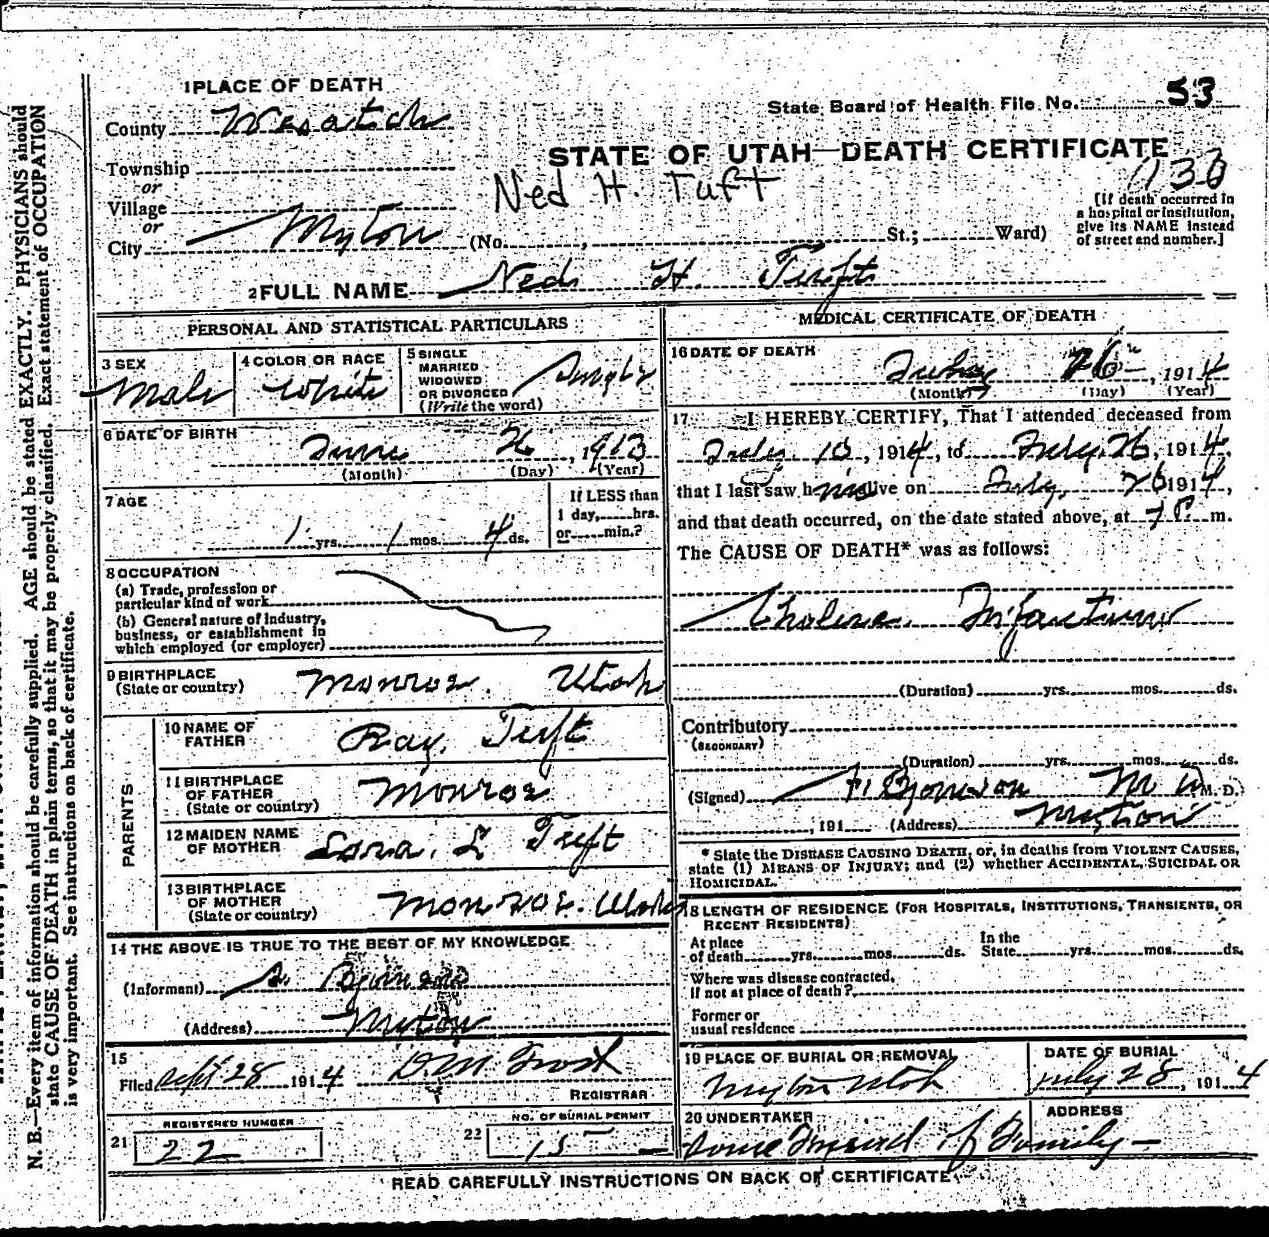 1 PLACE OF DEATH
State Board of Health File No. 53
County Wasatch
STATE OF UTAH—DEATH CERTIFICATE
Township
or
Village
or
City Myton
(No. , St.; Ward)
Ned H. Tuft
[If death occurred in
a hospital or institution,
give its NAME instead
of street and number.]
2 FULL NAME Ned H. Tuft
PERSONAL AND STATISTICAL PARTICULARS
3 SEX
Male
4 COLOR OR RACE
White
5 SINGLE
MARRIED
WIDOWED
OR DIVORCED
(Write the word)
Single
6 DATE OF BIRTH
June 26, 1913
(Month) (Day) (Year)
7 AGE
1 yrs. 1 mos. 4 ds.
If LESS than
1 day, hrs.
or min.?
8 OCCUPATION
(a) Trade, profession or
particular kind of work
(b) General nature of industry,
business, or establishment in
which employed (or employer)
9 BIRTHPLACE
(State or country)
Monroe. Utah
PARENTS
10 NAME OF
FATHER
Ray. Tuft
11 BIRTHPLACE
OF FATHER
(State or country)
Monroe
12 MAIDEN NAME
OF MOTHER
L Tuft
13 BIRTHPLACE
OF MOTHER
(State or country)
Monroe. Utah
14 THE ABOVE IS TRUE TO THE BEST OF MY KNOWLEDGE
(Informant)
(Address) Myton
15
Filed Sept 28 1914 D.M. Frost
REGISTRAR
21 REGISTERED NUMBER
22
22 NO. OF BURIAL PERMIT
15
MEDICAL CERTIFICATE OF DEATH
16 DATE OF DEATH
July 26th, 1914
(Month) (Day) (Year)
17 I HEREBY CERTIFY, That I attended deceased from
July 10, 1914, to July 26, 1914,
that I last saw him alive on July, 26 1914,
and that death occurred, on the date stated above, at 7 P. m.
The CAUSE OF DEATH* was as follows:
Cholera Infantum
(Duration) yrs. mos. ds.
Contributory
(SECONDARY)
(Duration) yrs. mos. ds.
(Signed) M D M. D.
, 191 (Address) Myton
* State the DISEASE CAUSING DEATH, or, in deaths from VIOLENT CAUSES,
state (1) MEANS OF INJURY; and (2) whether ACCIDENTAL, SUICIDAL OR
HOMICIDAL.
18 LENGTH OF RESIDENCE (FOR HOSPITALS, INSTITUTIONS, TRANSIENTS, OR
RECENT RESIDENTS)
At place
of death yrs. mos. ds.
In the
State yrs. mos. ds.
Where was disease contracted,
If not at place of death?
Former or
usual residence
19 PLACE OF BURIAL OR REMOVAL
Myton Utah
DATE OF BURIAL
July 28, 1914
20 UNDERTAKER
Some Friend of Family
ADDRESS
READ CAREFULLY INSTRUCTIONS ON BACK OF CERTIFICATE
N. B.—Every item of information should be carefully supplied. AGE should be stated EXACTLY. PHYSICIANS should
state CAUSE OF DEATH in plain terms, so that it may be properly classified. Exact statement of OCCUPATION
is very important. See instructions on back of certificate.